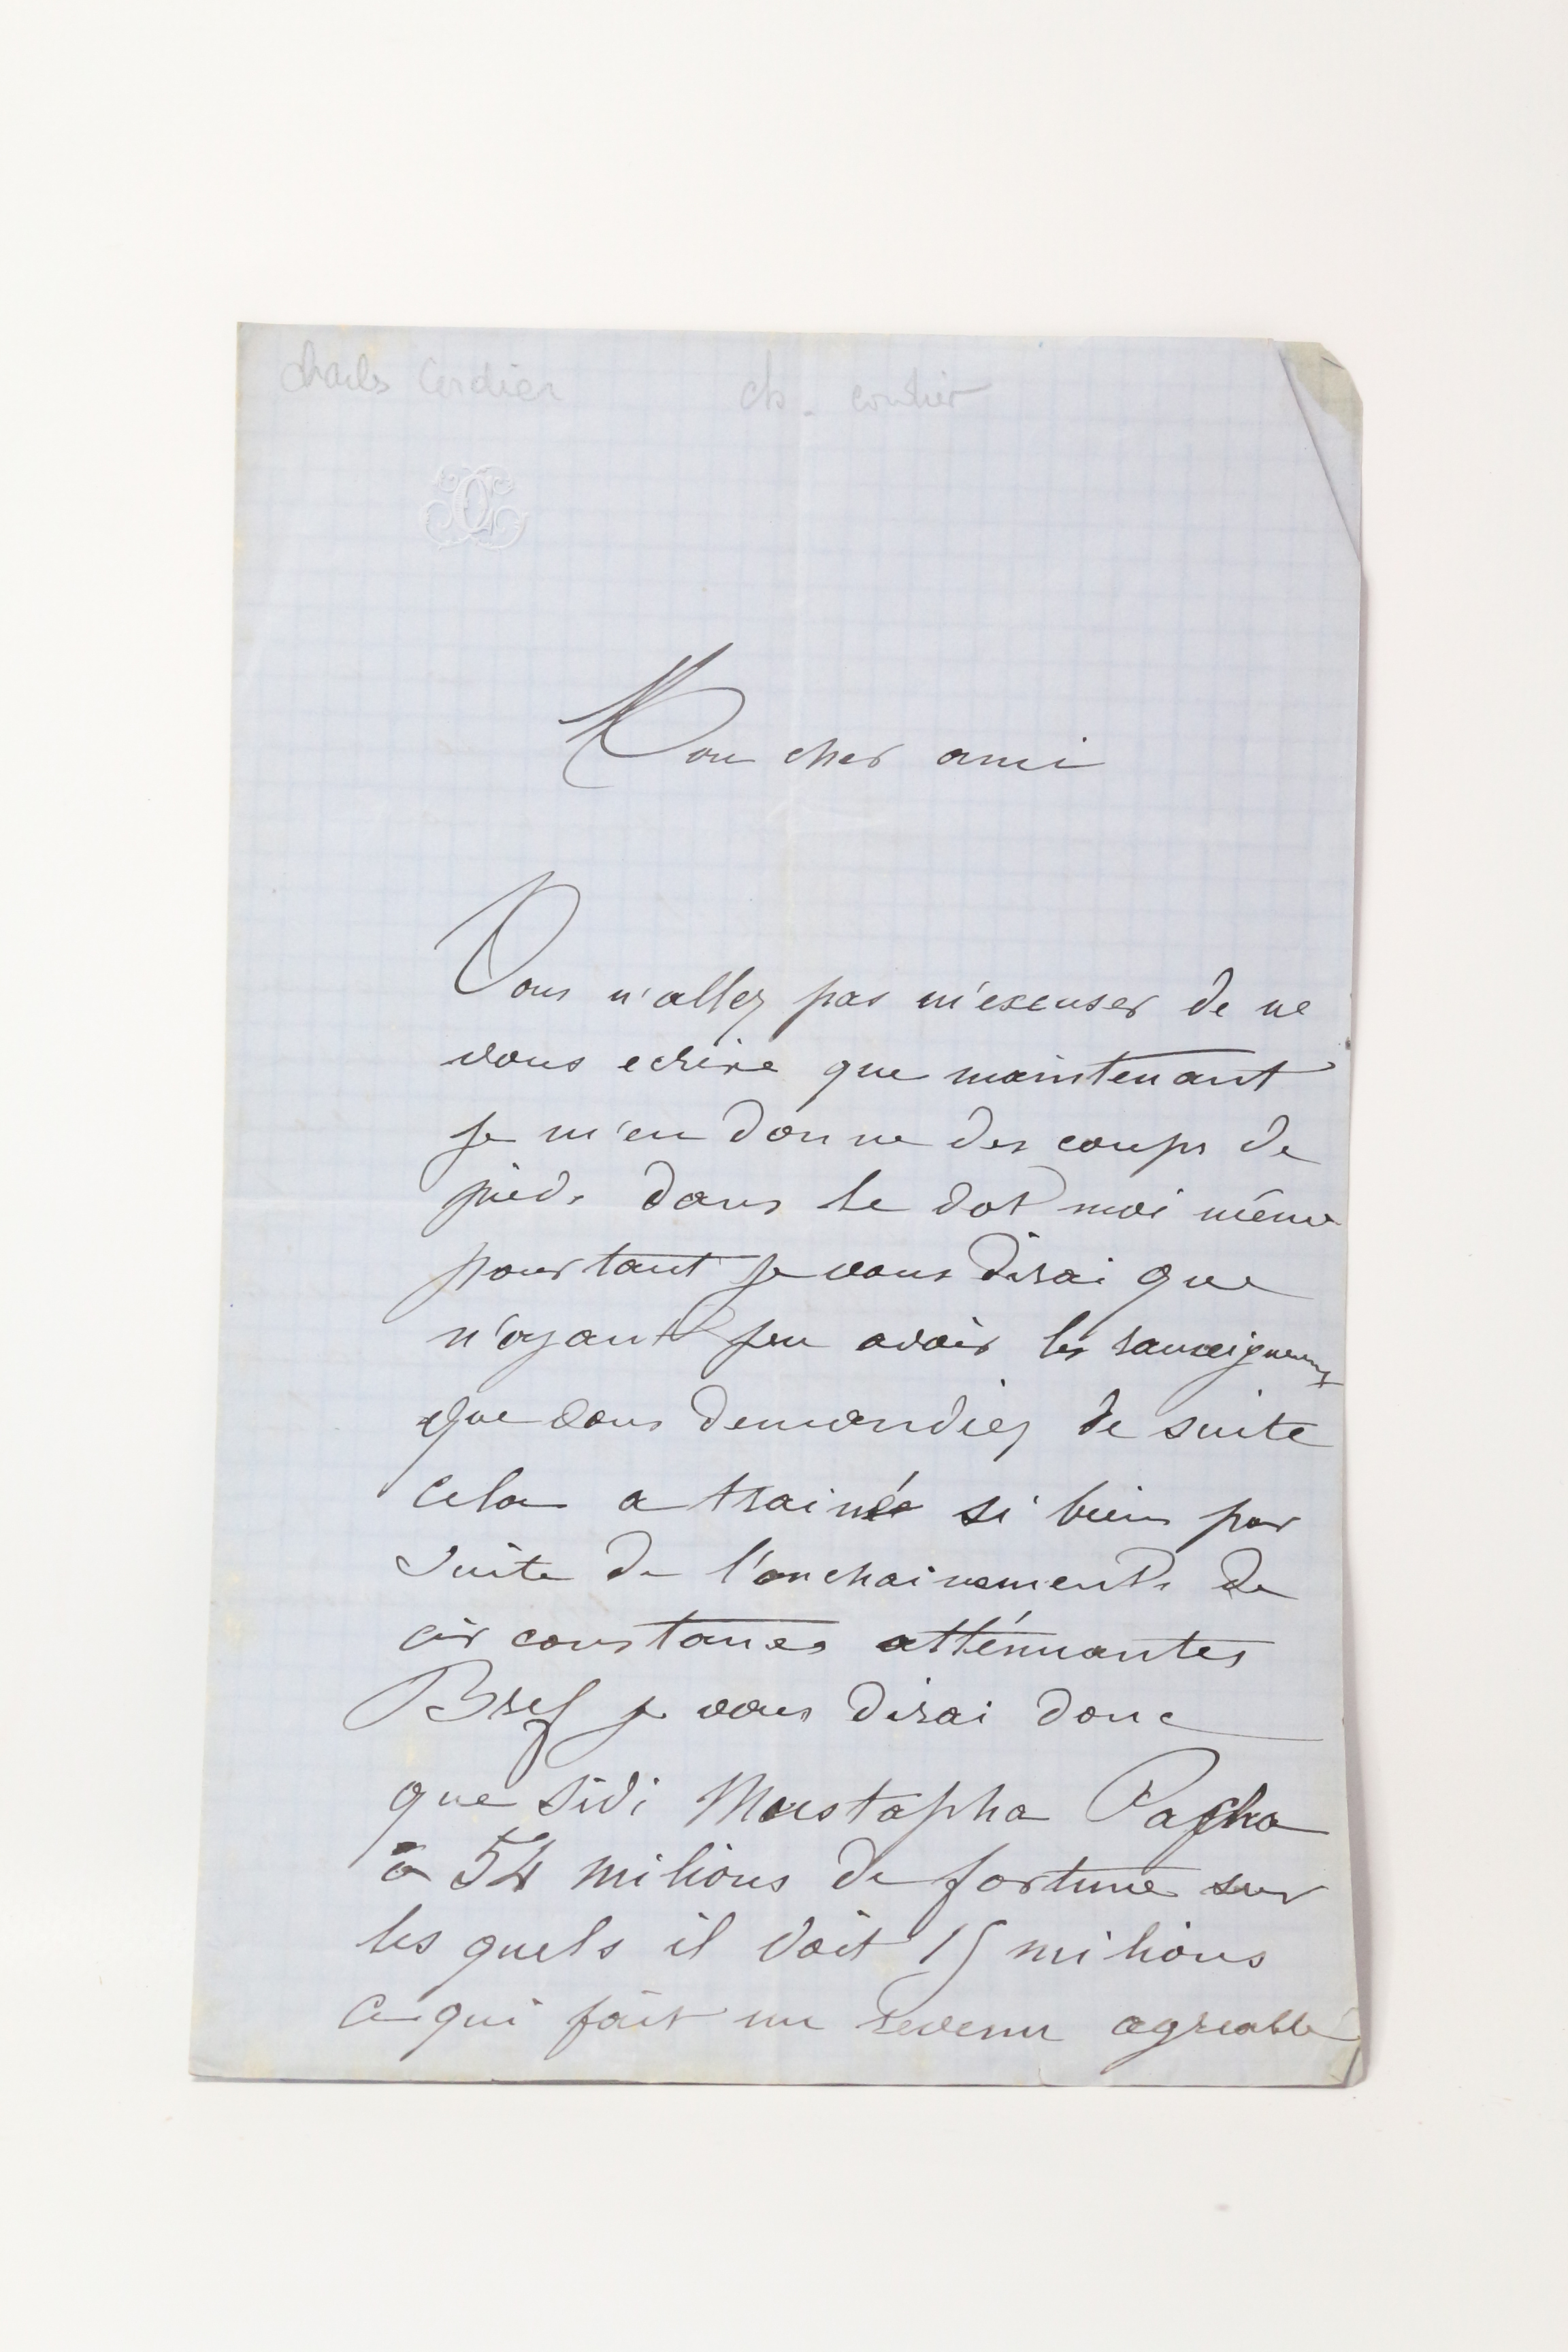 charles Cordier ch. cordier
Mon cher ami
Vous n'allez pas m'excuser de ne
vous ecrire que maintenant
je m'en donne des coups de
pieds dans le dot moi même
pourtant je vous dirai que
n'ayant peu avoir les
que vous demandiez de suite
cela a trainé si bien par
suite de l'enchainements de
circonstances atténuantes
Bref je vous dirai donc
que Sidi Mustapha Pacha
à 54 milions de fortune sur
les quels il doit 15 milions
ce qui fait un revenu agreable